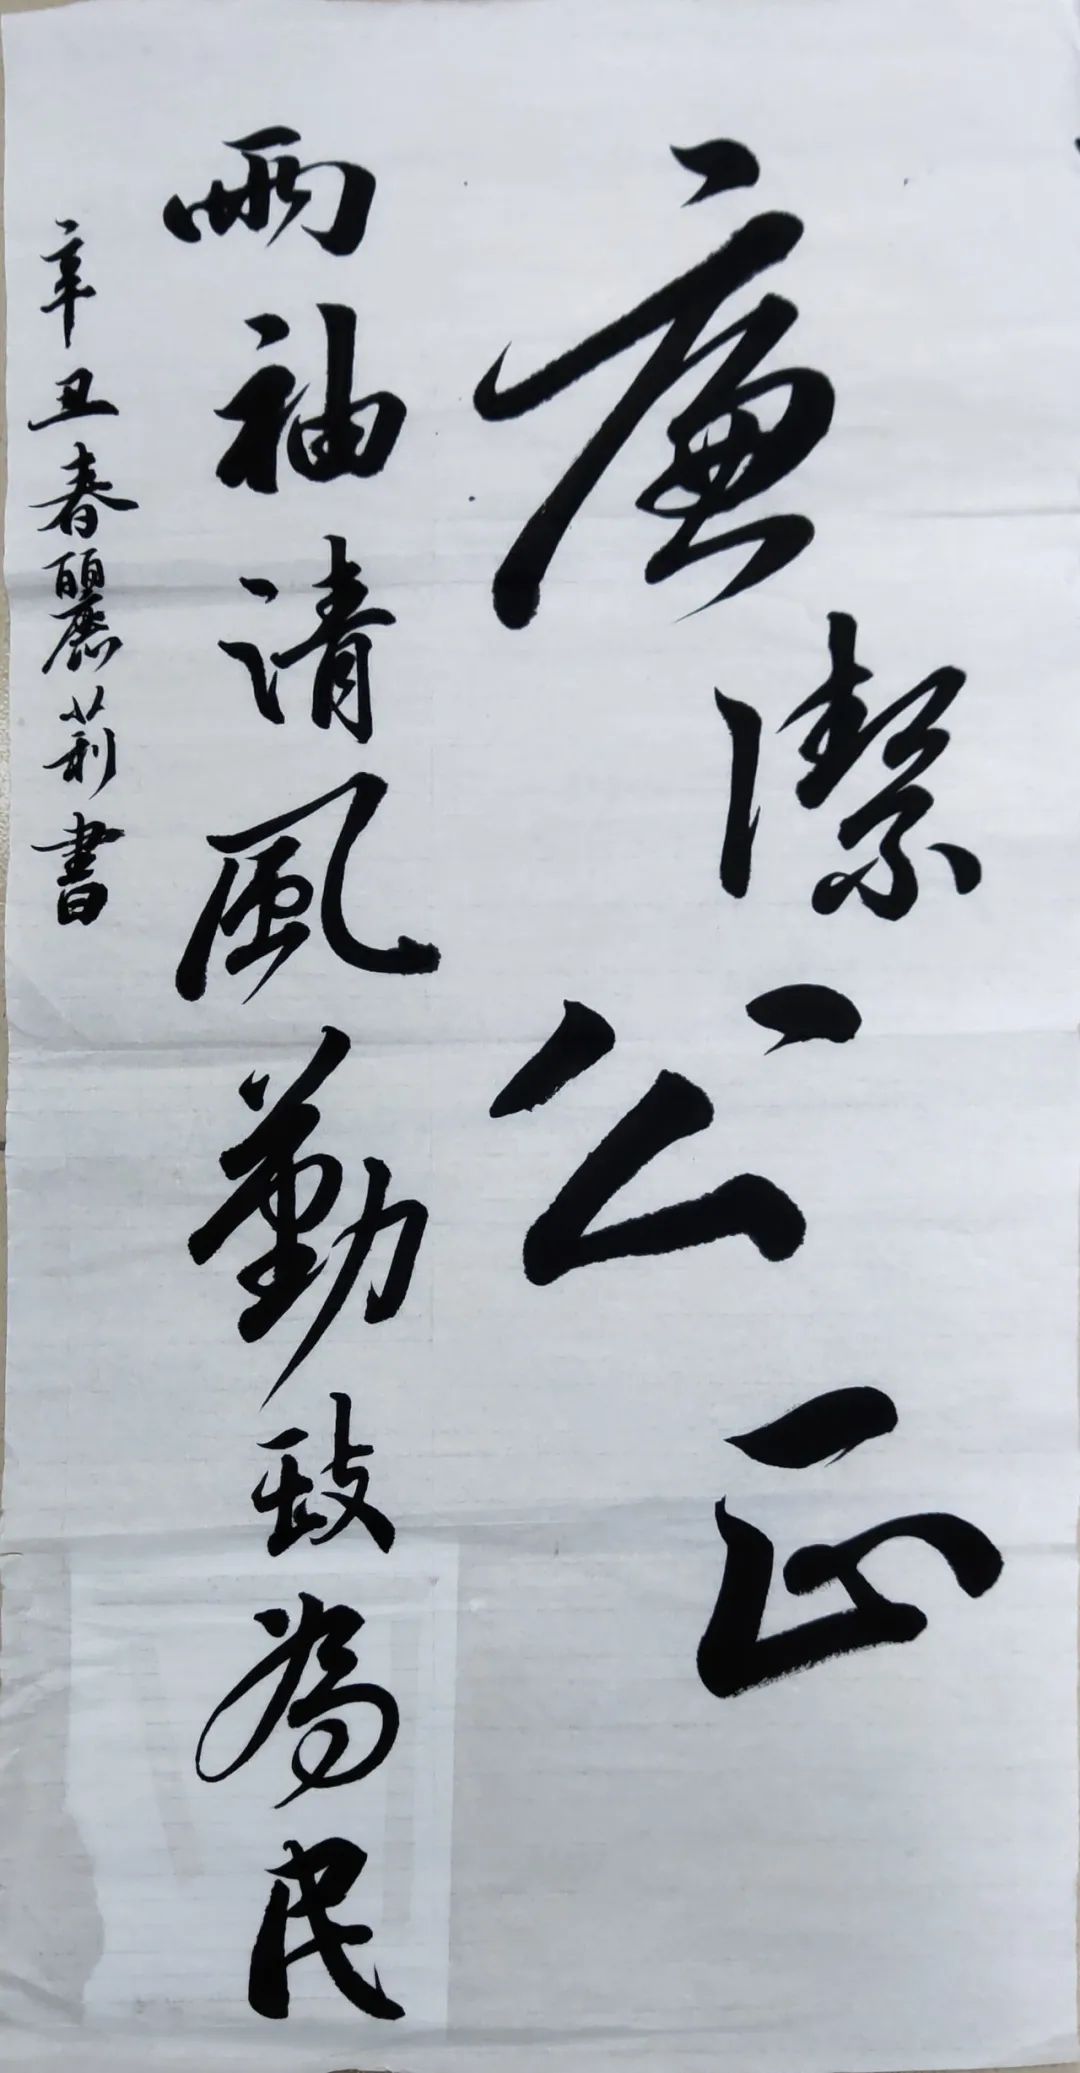 廉潔公正
兩袖清風勤政為民
辛丑春麗莉書